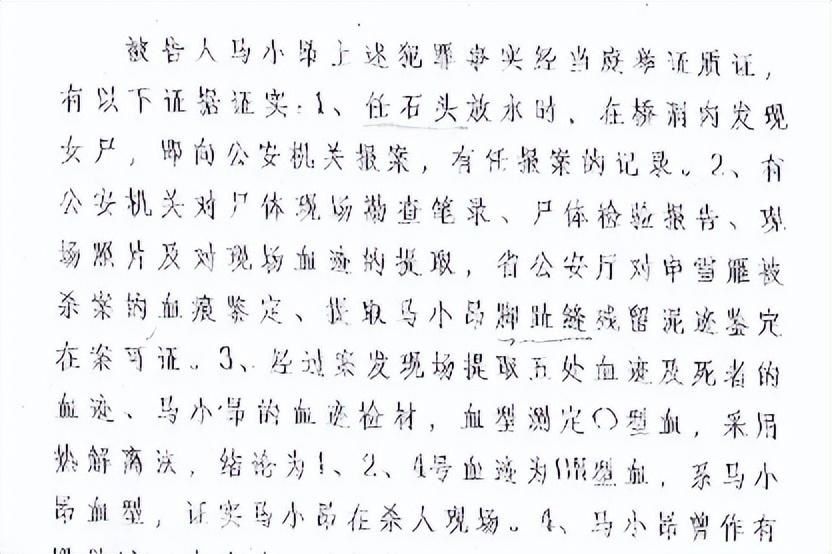 被告人马小昂上述犯罪事实经当庭举证质证,
有以下证据证实:1、任石头放水时、在桥洞内发现
女尸,即向公安机关报案,有任报案的记录。2、有
公安机关对尸体现场勘查笔录、尸体检验报告、现
场照片及对现场血迹的提取,省公安厅对申雪雁被
杀案的血痕鉴定、提取马小昂脚趾缝残留泥迹鉴定
在案可证。3、经过案发现场提取五处血迹及死者的
血迹、马小昂的血迹检材,血型测定O型血,采用
热解离法,结论为1、2、4号血迹为 型血,系马小
昂血型,证实马小昂在杀人现场。4、马小昂曾作有